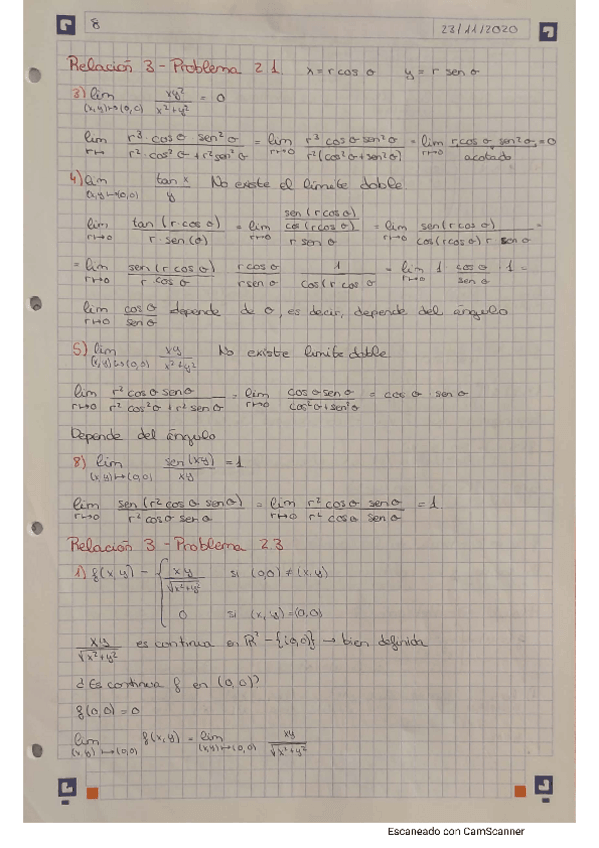 8
23/11/2020
Relación 3 - Problema 2.1 x = r cos σ y = r sen σ
3) lim (x,y)→(0,0) xy²/(x²+y²) = 0
lim r→ r³·cos σ sen²σ/(r²·cos²σ + r² sen²σ) = lim r→0 r³ cos σ sen²σ/(r²(cos²σ + sen²σ)) = lim r→0 r cos σ sen²σ = 0
acotado
4) lim (x,y)→(0,0) tan x/y No existe el límite doble
lim r→0 tan(r·cos σ)/(r·sen(σ)) = lim r→0 (sen(r cos σ)/cos(r cos σ))/(r sen σ) = lim r→0 sen(r cos σ)/(cos(r cos σ) r sen σ) =
= lim r→0 sen(r cos σ)/(r cos σ) r cos σ/(r sen σ) 1/(cos(r cos σ = lim r→0 1 cos σ/sen σ · 1 =
lim r→0 cos σ/sen σ depende de σ, es decir, depende del ángulo
5) lim (x,y)→(0,0) xy/(x²+y²) No existe límite doble
lim r→0 r² cos σ sen σ/(r² cos²σ + r² sen σ) = lim r→0 cos σ sen σ/(cos²σ + sen²σ) = cos σ · sen σ
Depende del ángulo
8) lim (x,y)→(0,0) sen(xy)/xy = 1
lim r→0 sen(r² cos σ sen σ)/(r² cos σ sen σ) = lim r→0 r² cos σ sen σ/(r² cos σ sen σ) = 1
Relación 3 - Problema 2.3
1) f(x,y) = { xy/√(x²+y²) si (0,0) ≠ (x,y)
0 si (x,y) = (0,0)
xy/√(x²+y²) es continua en R² - {(0,0)} → bien definida
¿Es continua f en (0,0)?
f(0,0) = 0
lim (x,y)→(0,0) f(x,y) = lim (x,y)→(0,0) xy/√(x²+y²)
Escaneado con CamScanner